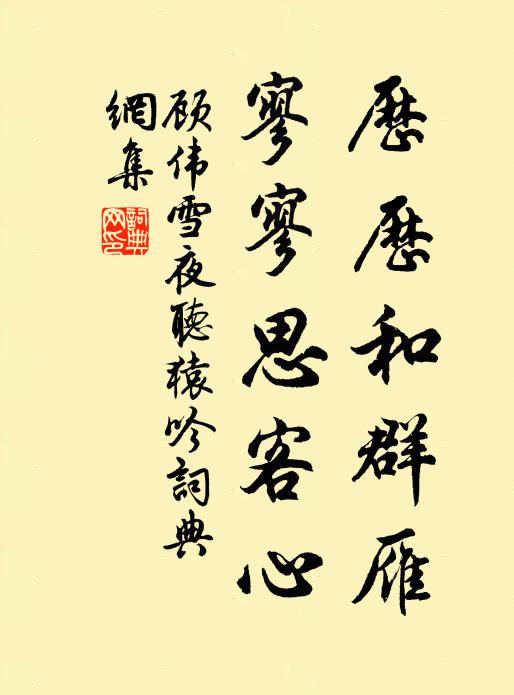 歷歷和群雁
寥寥思客心
顾伟雪夜聽猿吟詞典
網集
詞典
网印